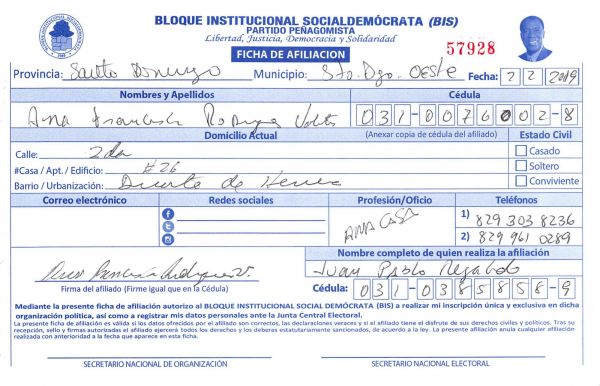 BLOQUE INSTITUCIONAL SOCIALDEMÓCRATA (BIS)
PARTIDO PEÑAGOMISTA
Libertad, Justicia, Democracia y Solidaridad
FICHA DE AFILIACION
57928
Provincia: Santo Domingo Municipio: Sto. Dgo. oeste Fecha: 2 2 2019
Nombres y Apellidos Cédula
Ana Francisca Rodriguez 031-0076002-8
Domicilio Actual (Anexar copia de cédula del afiliado) Estado Civil
Calle: 2da Casado
#Casa / Apt. / Edificio: #26 Soltero
Barrio / Urbanización: Duarte de Herrera Conviviente
Correo electrónico Redes sociales Profesión/Oficio Teléfonos
AMA CASA
1) 829 303 8236
2) 829 961 0289
Nombre completo de quien realiza la afiliación
Juan Pablo Regalado
Firma del afiliado (Firme igual que en la Cédula)
Cédula: 031-0385858-9
Mediante la presente ficha de afiliación autorizo al BLOQUE INSTITUCIONAL SOCIAL DEMÓCRATA (BIS) a realizar mi inscripción única y exclusiva en dicha
organización política, así como a registrar mis datos personales ante la Junta Central Electoral.
La presente ficha de afiliación es válida si los datos ofrecidos por el afiliado son correctos, las declaraciones veraces y si el afiliado tiene el disfrute de sus derechos civiles y políticos. Tras su
recepción, sello y firmas autorizadas el afiliado ejercerá todos los derechos y los deberes estatutariamente sancionados, de acuerdo a la ley. La presente afiliación anula cualquier afiliación
realizada con anterioridad a la fecha que aparece en esta ficha.
SECRETARIO NACIONAL DE ORGANIZACIÓN SECRETARIO NACIONAL ELECTORAL